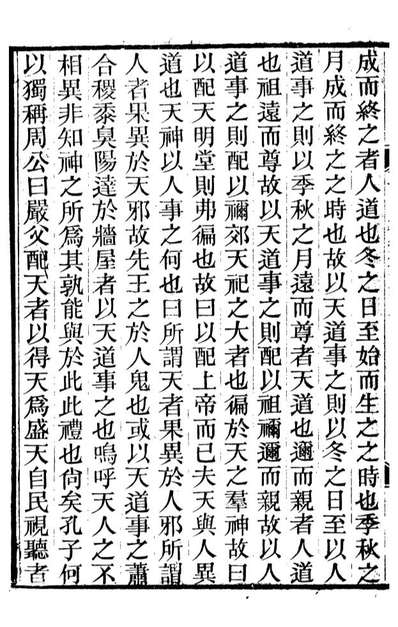 成而終之者人道也冬之日至始而生之之時也季秋之
月成而終之之時也故以天道事之則以冬之日至以人
道事之則以季秋之月遠而尊者天道也邇而親者人道
也祖遠而尊故以天道事之則配以祖禰邇而親故以人
道事之則配以禰郊天祀之大者也徧於天之羣神故曰
以配天明堂則弗徧也故曰以配上帝而已夫天與人異
道也天神以人事之何也曰所謂天者果異於人邪所謂
人者果異於天邪故先王之於人鬼也或以天道事之蕭
合稷黍臭陽達於牆屋者以天道事之也嗚呼天人之不
相異非知神之所爲其孰能與於此此禮也尙矣孔子何
以獨稱周公曰嚴父配天者以得天爲盛天自民視聽者